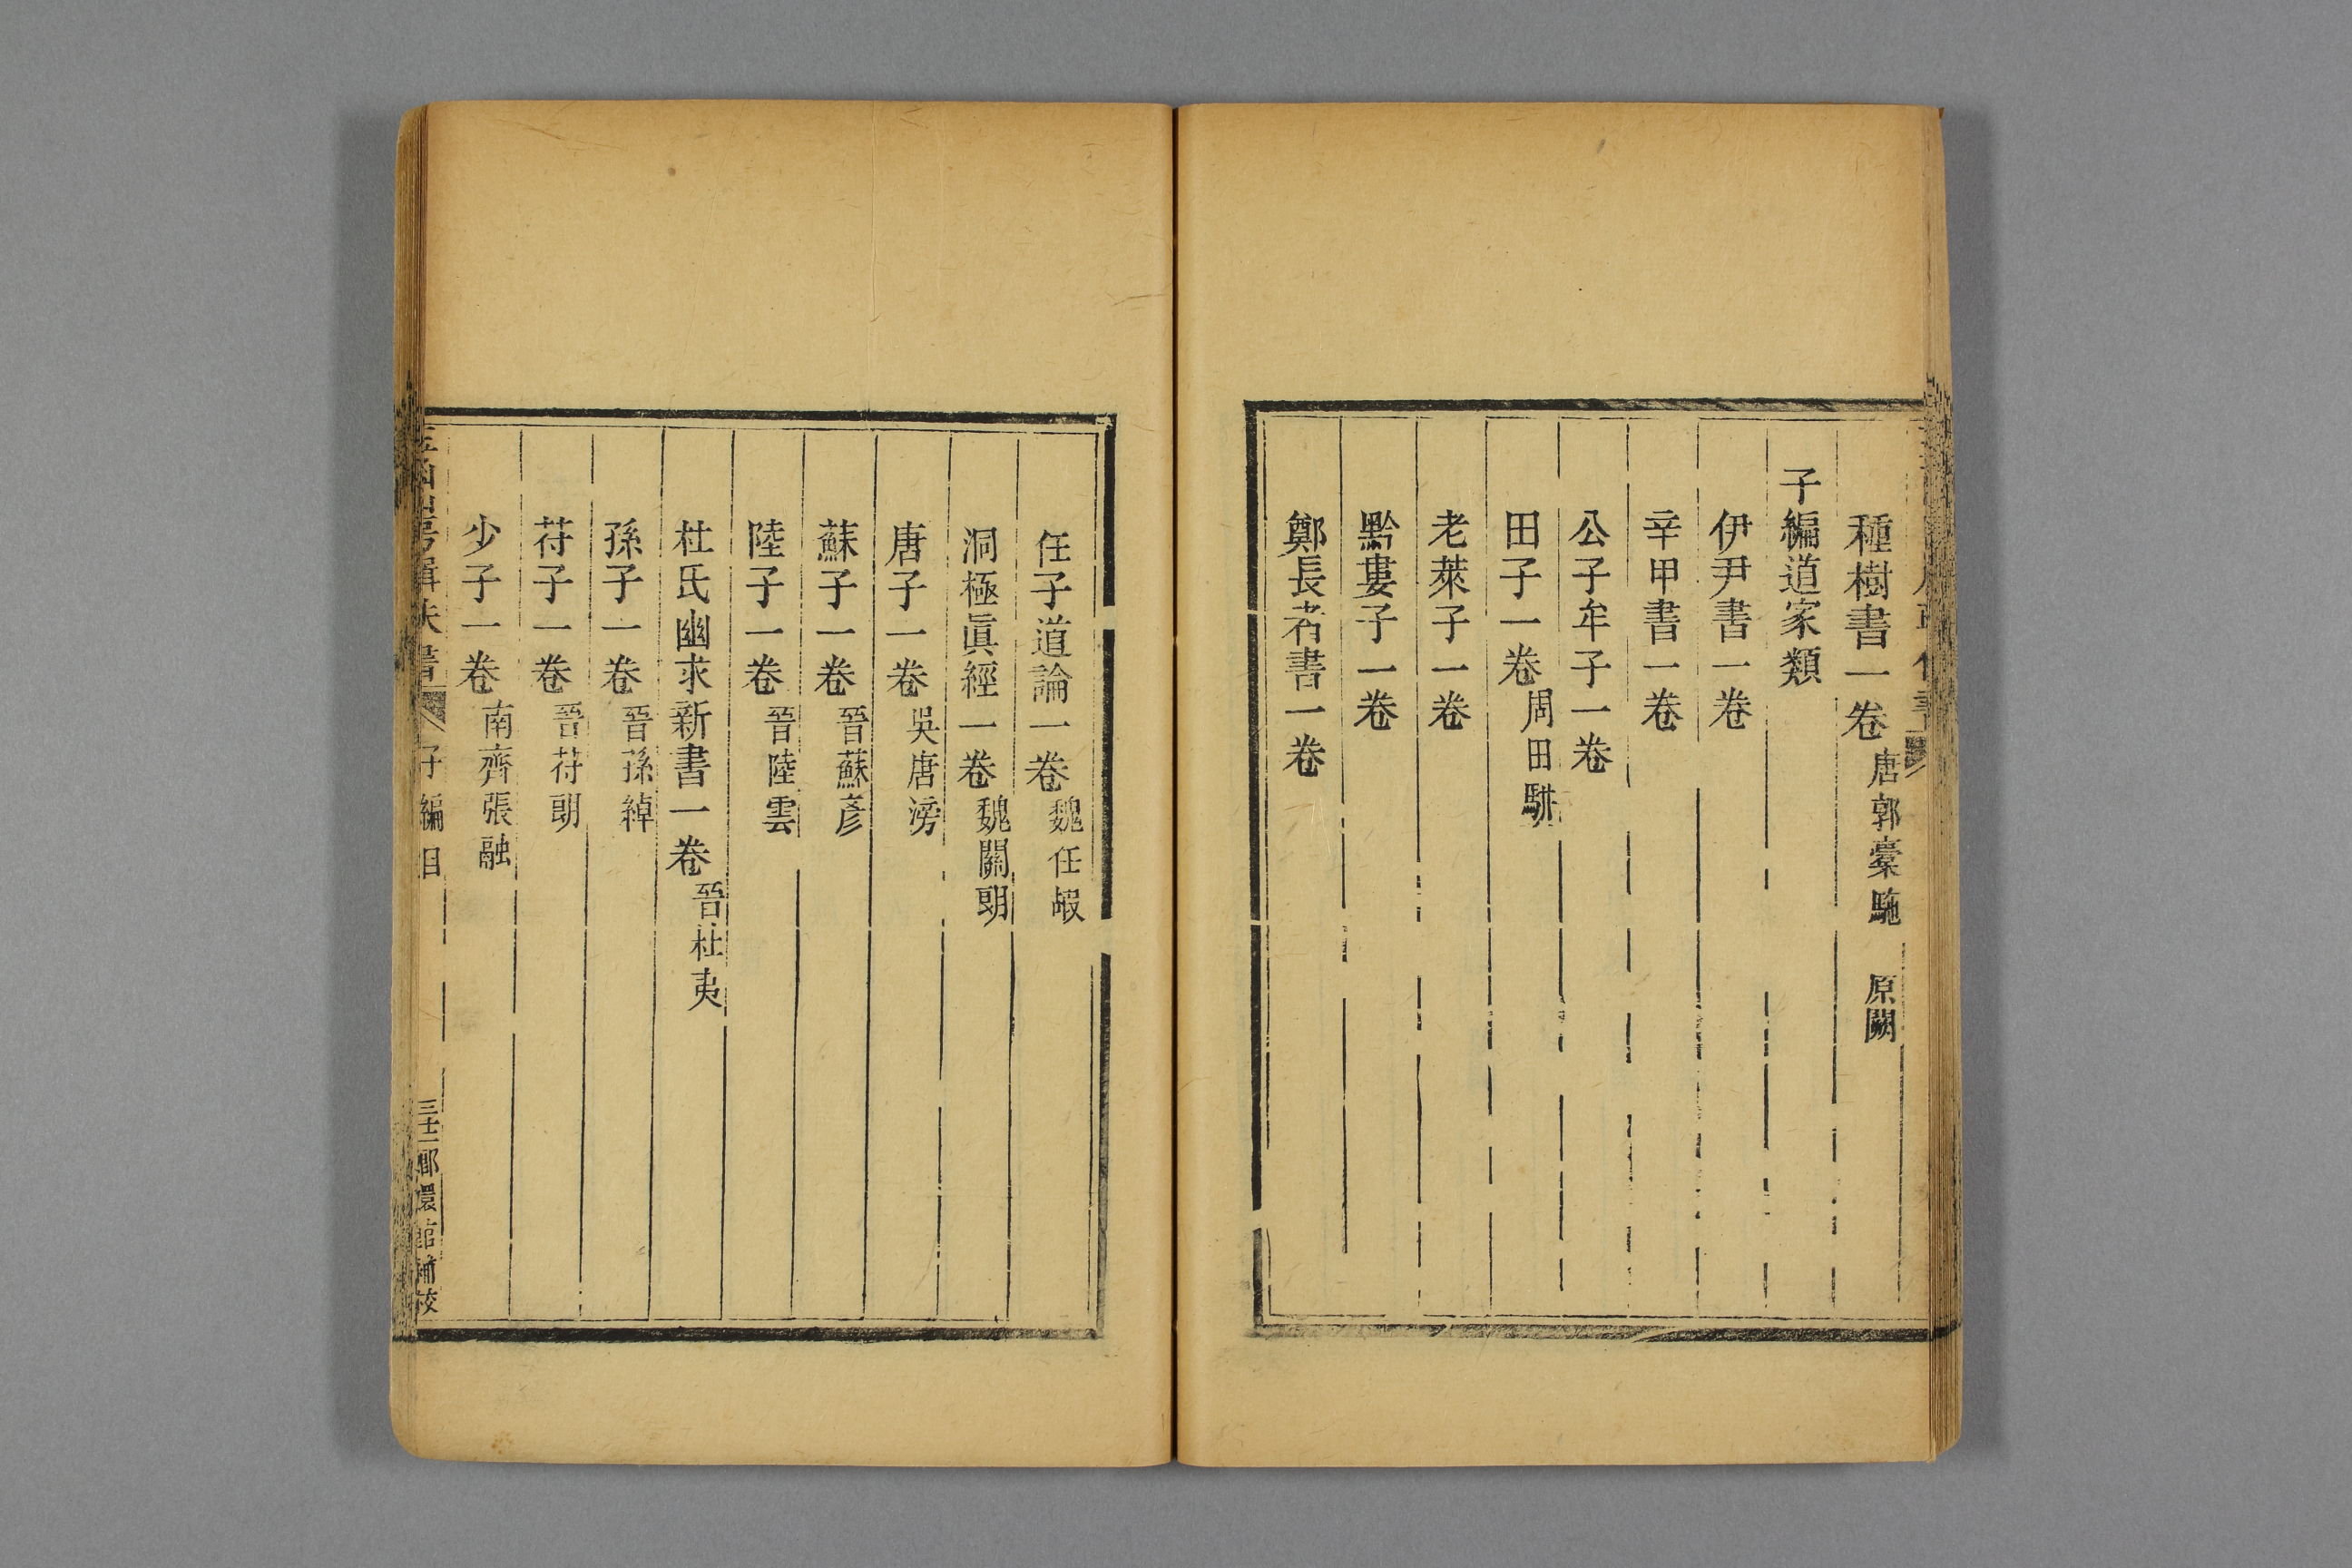 種樹書一卷 唐郭橐駞 原闕
子編道家類
伊尹書一卷
辛甲書一卷
公子牟子一卷
田子一卷 周田駢
老萊子一卷
黔婁子一卷
鄭長者書一卷
任子道論一卷 魏任嘏
洞極眞經一卷 魏關朗
唐子一卷 吳唐滂
蘇子一卷 晉蘇彥
陸子一卷 晉陸雲
杜氏幽求新書一卷 晉杜夷
孫子一卷 晉孫綽
苻子一卷 晉苻朗
少子一卷 南齊張融
玉函山房輯佚書 子編目 嫏嬛館補校